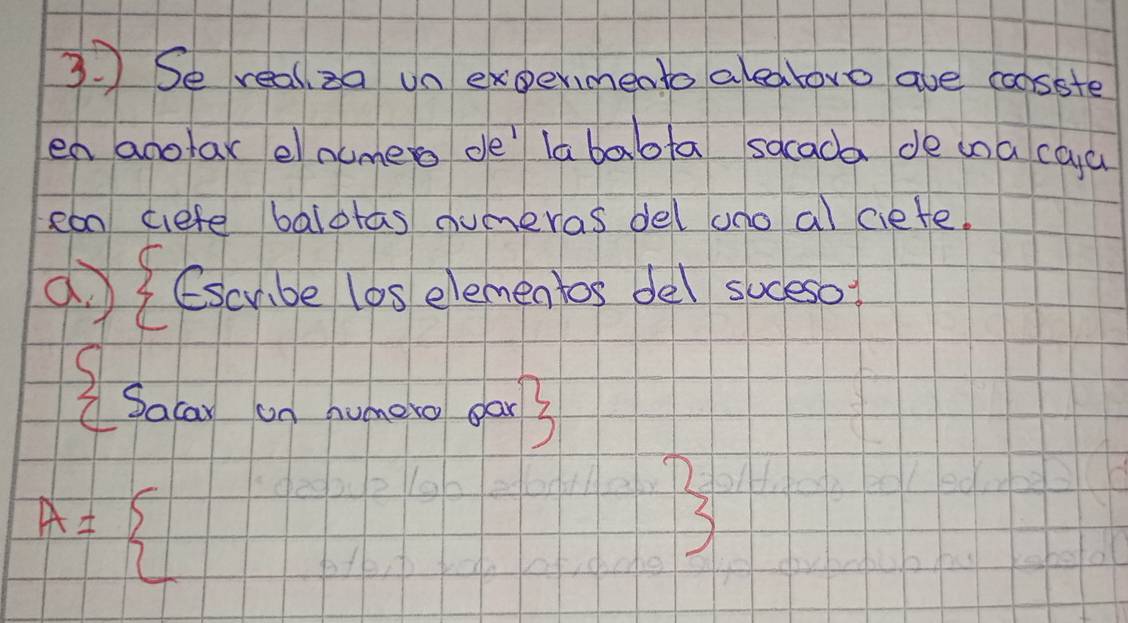 3.) Se realiza un experimento aleatoro que consste
en anotar el numero de la balota sacada de una caja
con ciete balotas numeras del uno al ciete.
a.) { Escribe los elementos del suceso:
{ Sacar un numero par }
A = { }